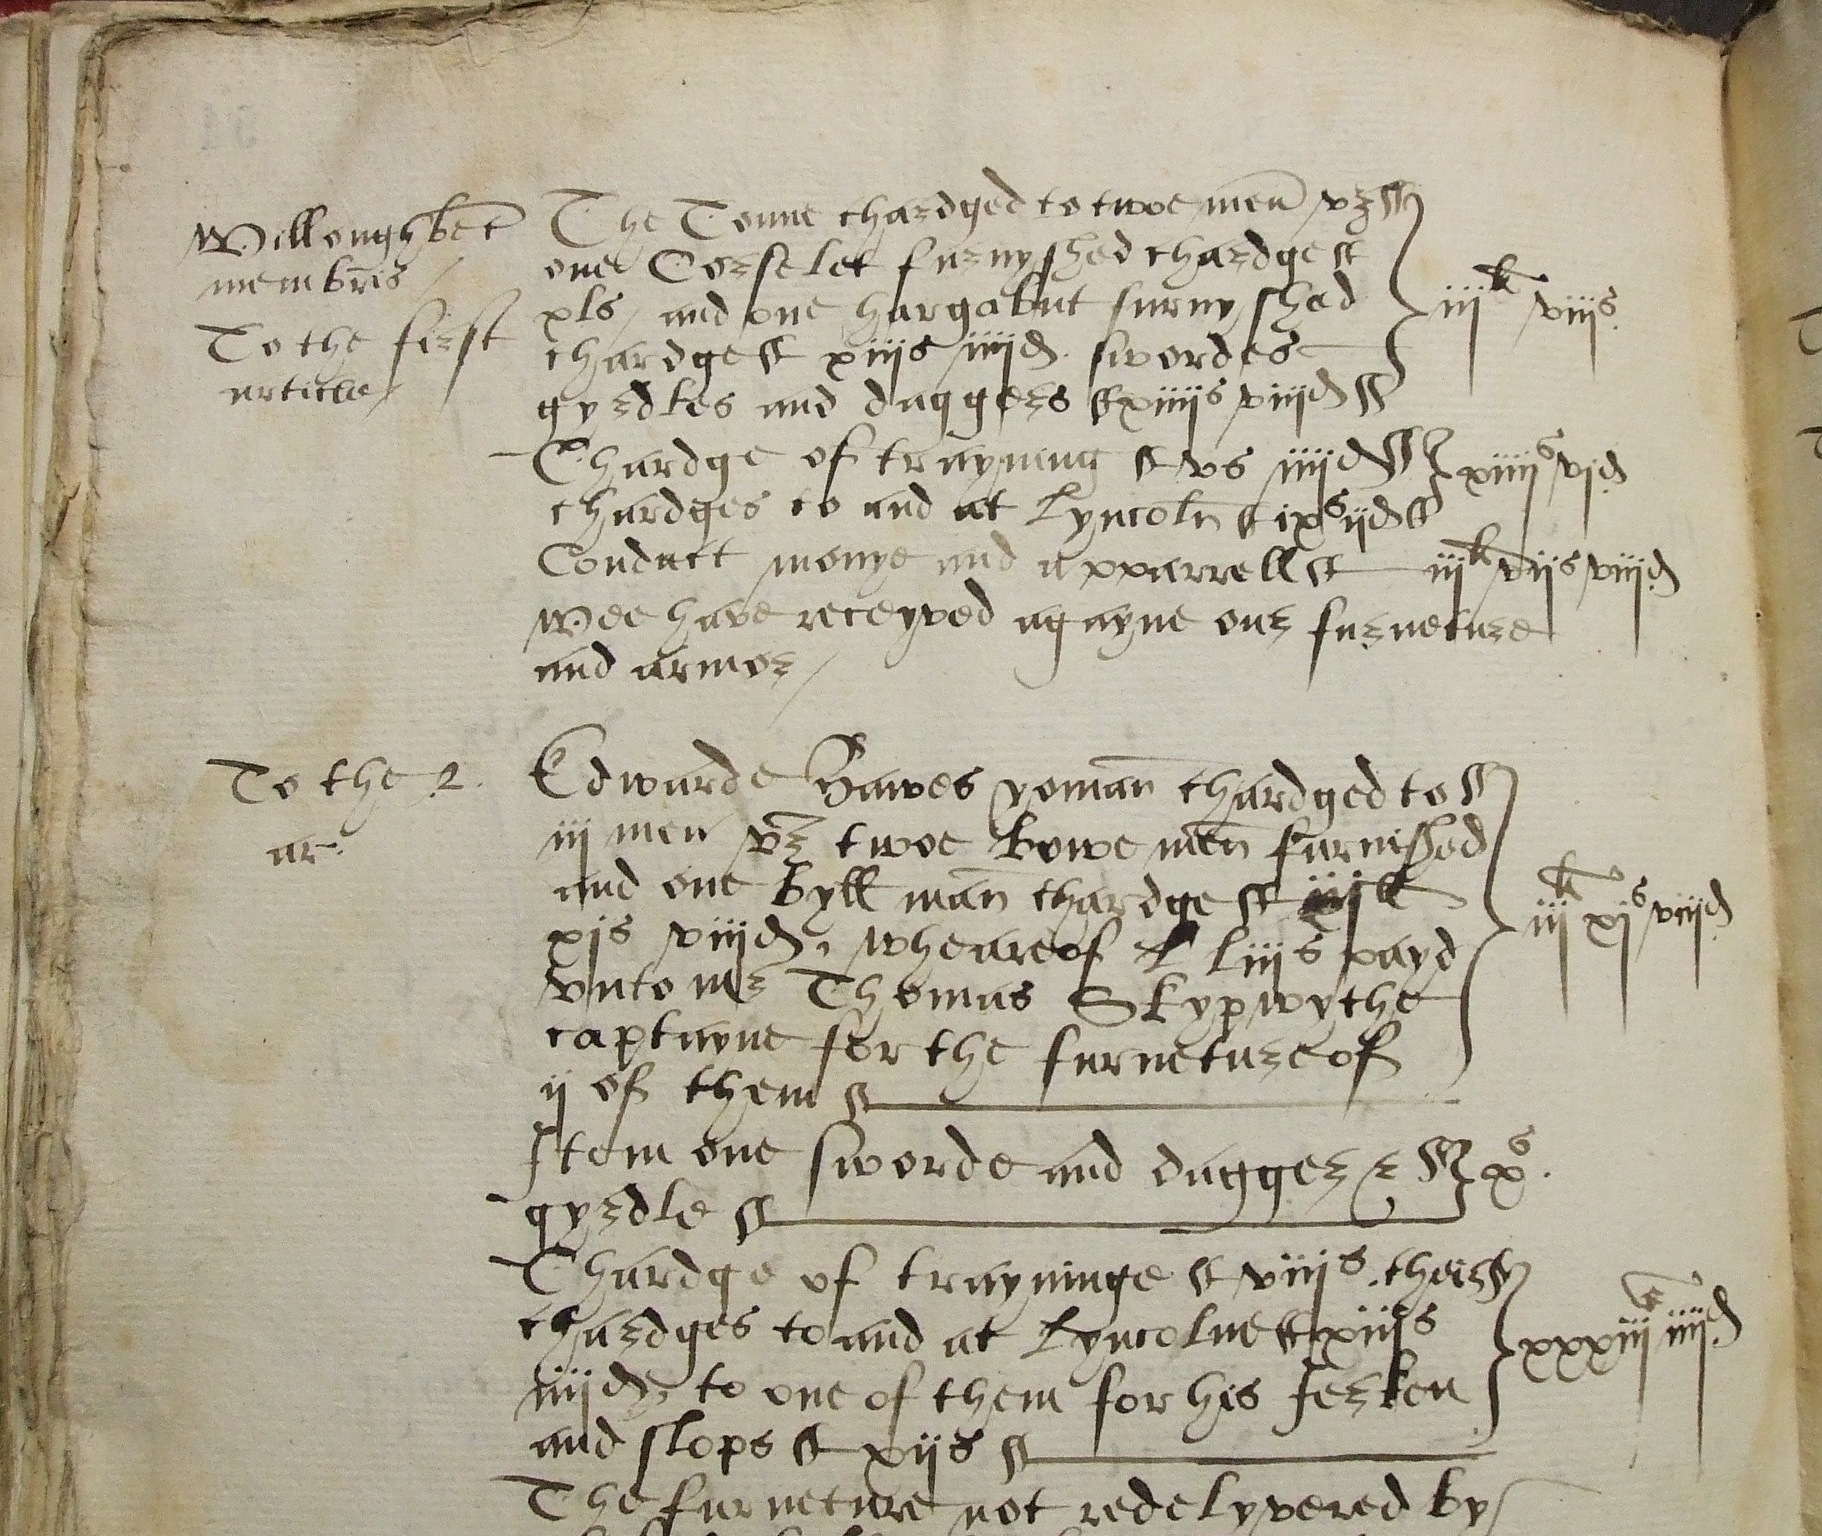 Willoughbe cū
membris
To the first
article
The Towne chardged to twoe men vz
one Corselet furnyshed chardge
xls and one hargabut furnyshed
chardge xiijs iiijd swordes
gyrdles and daggers xiiijs viijd
iijli viijs
Chardge of trayning vs iiijd
chardges to and at Lyncoln ixs ijd
xiiijs vjd
Conduct monye and apparrell iijli viis viijd
Wee have receyved agayne our furneture
and armor
To the 2
ar.
Edwarde Hawes yoman chardged to
iij men vz twoe Bowe men furnished
and one byll man chardge iijli
xjs viijd, wheareof liijs payd
vnto mr Thomas Skypwythe
captayne for the furneture of
ij of them
iijli xjs viijd
Item one sworde and dagger &
gyrdle
xs
Chardge of trayninge viijs. their
chardges to and at Lyncolne xiijs
iiijd to one of them for his Jerken
and slops xijs
xxxiijs iiijd
The furneture not redelyvered by